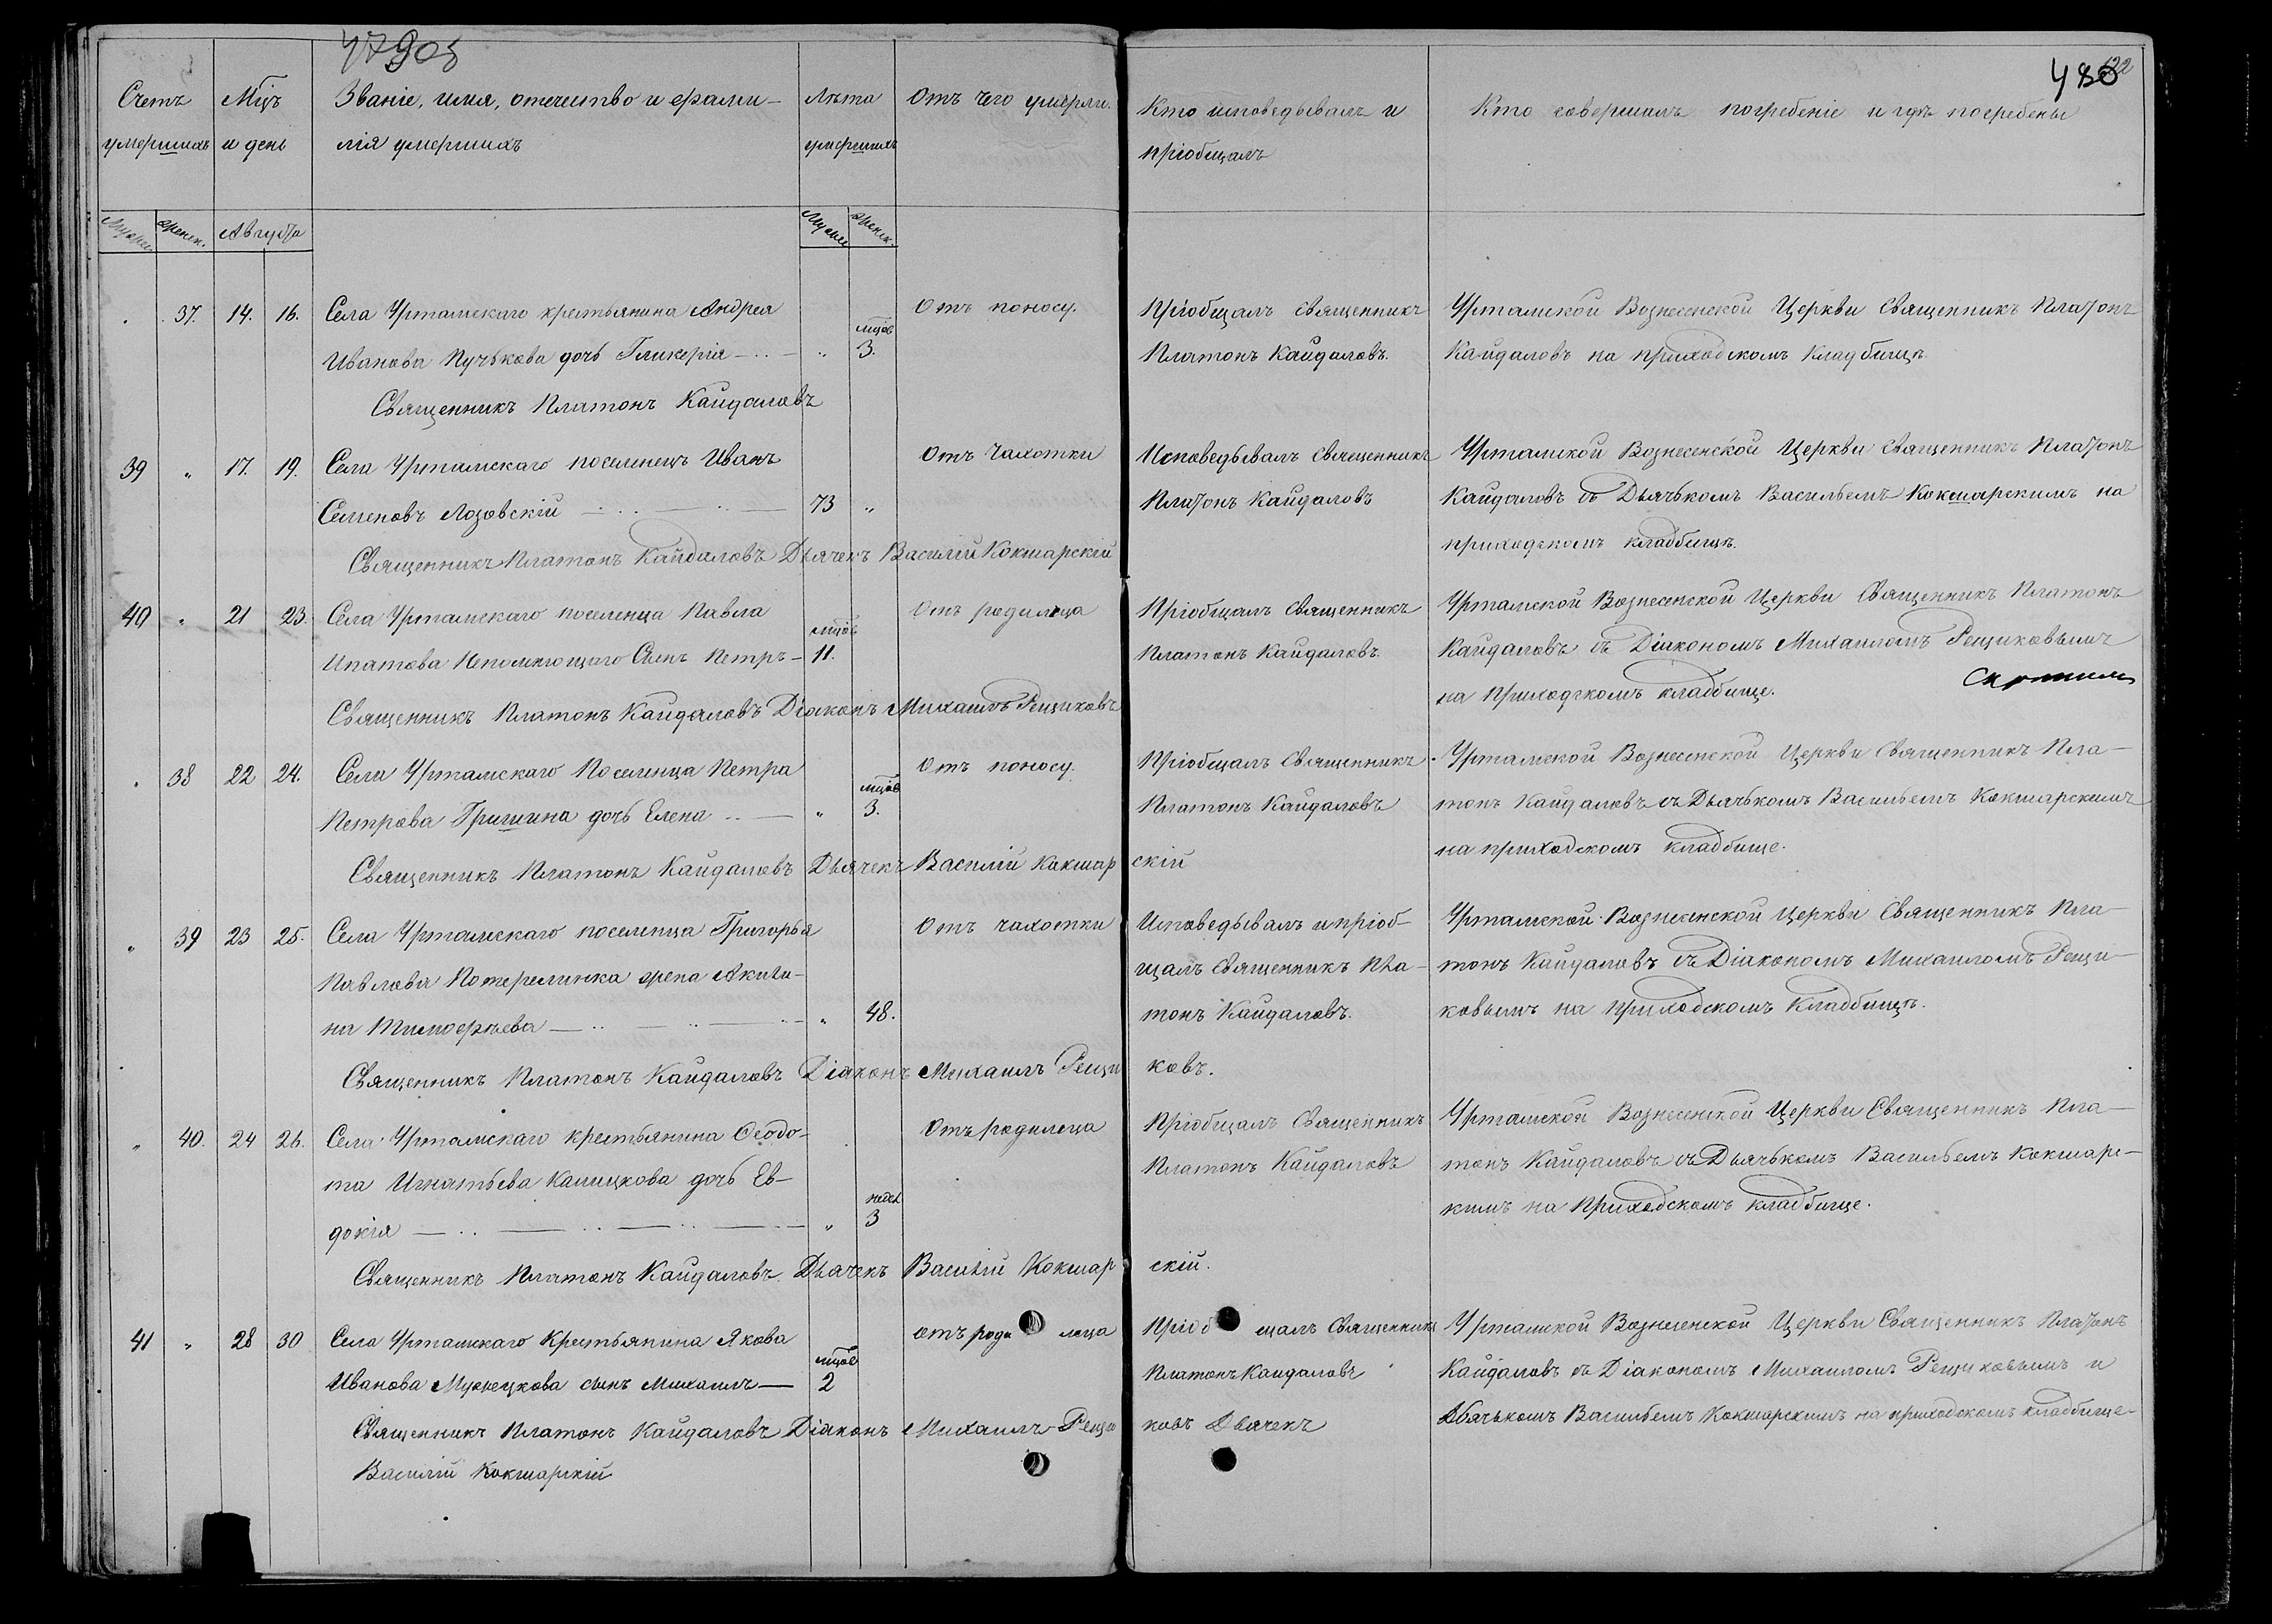 479об
480
122
Счетъ умершихъ
Мцъ и день
Званіе, имя, отечество и фами-
лія умершихъ
Лѣта умершихъ
Отъ чего умерли.
Кто исповѣдывалъ и
пріобщалъ
Кто совершалъ погребеніе и гдѣ погребены
женск.
Августа
женск.
37. 14. 16. Села Уртамскаго крестьянина Андрея
Иванова Пучькова дочь Гликерія " мцов 3.
Отъ поносу.
Пріобщалъ священникъ
Платонъ Кайдаловъ.
Уртамской Вознесенской Церкви Священникъ Платонъ
Кайдаловъ на приходскомъ кладбищѣ.
Священникъ Платонъ Кайдаловъ
39 " 17. 19. Села Уртамскаго поселенецъ Иванъ
Семеновъ Лозовскій 73 "
Отъ чахотки
Исповѣдывалъ священникъ
Платонъ Кайдаловъ
Уртамской Вознесенской Церкви Священникъ Платонъ
Кайдаловъ съ Дьячькомъ Васильемъ Кокшарскимъ на
приходскомъ кладбищѣ.
Священникъ Платонъ Кайдаловъ Дьячекъ Василій Кокшарскій
40 " 21 23. Села Уртамскаго поселенца Павла
Ипатова Непомнющаго Сынъ Петръ мцов 11.
Отъ родимца
Пріобщалъ священникъ
Платонъ Кайдаловъ.
Уртамской Вознесенской Церкви Священникъ Платонъ
Кайдаловъ съ Діакономъ Михаиломъ Рещиковымъ
на приходскомъ кладбище.
Священникъ Платонъ Кайдаловъ Діаконъ Михаилъ Рещиковъ
" 38 22 24. Села Уртамскаго Поселенца Петра
Петрова Гришина дочь Елена " мцов 3.
Отъ поносу.
Пріобщалъ Священникъ
Платонъ Кайдаловъ
Уртамской Вознесенской Церкви Священникъ Пла-
тонъ Кайдаловъ съ Дьячькомъ Васильемъ Кокшарскимъ
на приходскомъ кладбище.
Священникъ Платонъ Кайдаловъ Дьячекъ Василій Кокшарскій
" 39 23 25. Села Уртамскаго поселенца Григорья
Павлова жена Акили-
на Тимофѣева " 48.
Отъ чахотки
Исповѣдывалъ и пріоб-
щалъ священникъ Пла-
тонъ Кайдаловъ.
Уртамской Вознесенской Церкви Священникъ Пла-
тонъ Кайдаловъ съ Діакономъ Михаиломъ Рещи-
ковымъ на приходскомъ кладбищѣ.
Священникъ Платонъ Кайдаловъ Діаконъ Михаилъ Рещиковъ.
" 40. 24 26. Села Уртамскаго крестьянина Ѳеодо-
та Игнатьева дочь Ев-
докія " недел 3
Отъ родимца
Пріобщалъ Священникъ
Платонъ Кайдаловъ
Уртамской Вознесенской Церкви Священникъ Пла-
тонъ Кайдаловъ съ Дьячькомъ Васильемъ Кокшарс-
кимъ на приходскомъ кладбище.
Священникъ Платонъ Кайдаловъ Дьячекъ Василій Кокшарскій.
41 " 28 30 Села Уртамскаго Крестьянина Якова
Иванова сынъ Михаилъ мцов 2
отъ родимца
Пріобщалъ Священникъ
Платонъ Кайдаловъ
Уртамской Вознесенской Церкви Священникъ Платонъ
Кайдаловъ съ Діакономъ Михаиломъ Рещиковымъ и
Дьячькомъ Васильемъ Кокшарскимъ на приходскомъ кладбище
Священникъ Платонъ Кайдаловъ Діаконъ Михаилъ Рещиковъ Дьячекъ
Василій Кокшарскій